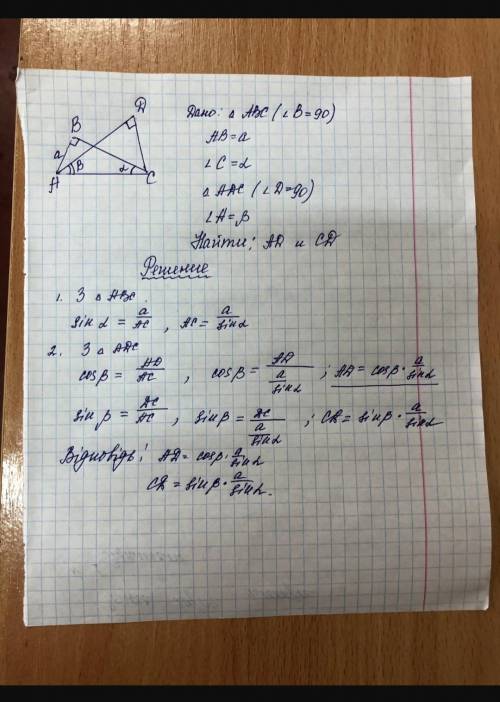 B
D
a
β
α
A
C
Дано: △ ABC (∠B=90)
AB=a
∠C=α
△ ADC (∠D=90)
∠A=β
Найти; AD и CD
Решение
1. З △ ABC.
sin α = a/AC , AC = a/sinα
2. З △ ADC
cosβ = AD/AC , cosβ = AD/(a/sinα) ; AD = cosβ · a/sinα
sin β = DC/AC , sinβ = DC/(a/sinα) ; CD = sinβ · a/sinα
Відповідь: AD = cosβ · a/sinα
CD = sinβ · a/sinα.